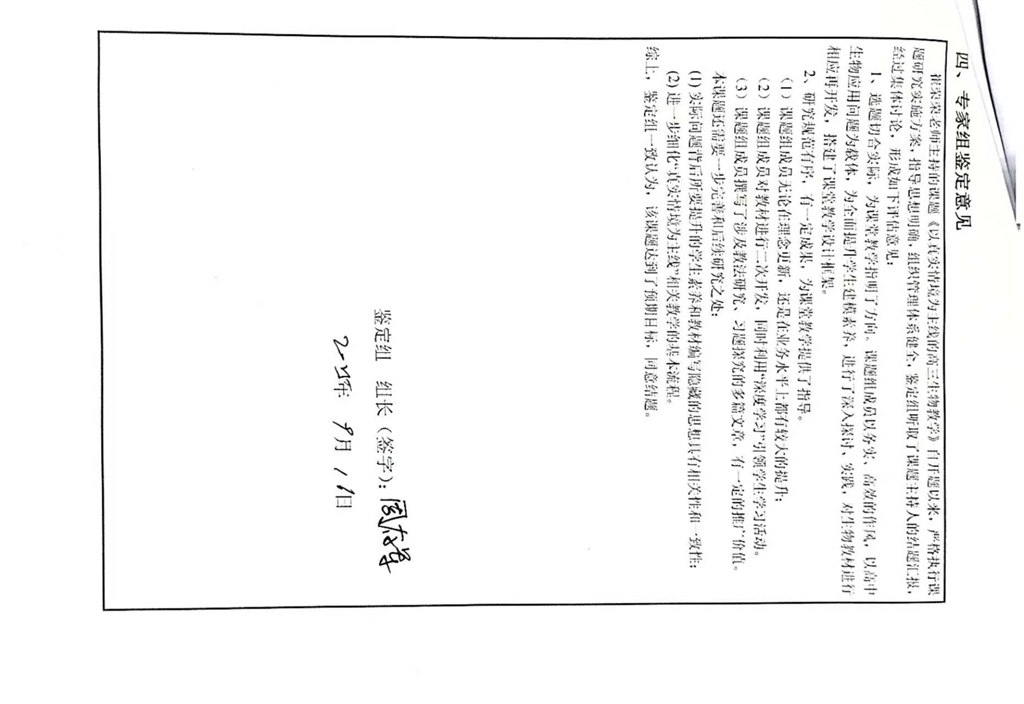 四、专家组鉴定意见
崔荣荣老师主持的课题《以真实情境为主线的高三生物教学》自开题以来，严格执行课
题研究实施方案，指导思想明确，组织管理体系健全，鉴定组听取了课题主持人的结题汇报，
经过集体讨论，形成如下评估意见：
1、选题切合实际，为课堂教学指明了方向。课题组成员以务实、高效的作风，以高中
生物应用问题为载体，为全面提升学生建模素养，进行了深入探讨、实践，对生物教材进行
相应再开发，搭建了课堂教学设计框架。
2、研究规范有序，有一定成果，为课堂教学提供了指导。
（1）课题组成员无论在理念更新，还是在业务水平上都有较大的提升；
（2）课题组成员对教材进行二次开发，同时利用“深度学习”引领学生学习活动。
（3）课题组成员撰写了涉及教法研究、习题探究的多篇文章，有一定的推广价值。
本课题还需要一步完善和后续研究之处：
(1) 实际问题背后所要提升的学生素养和教材编写隐藏的思想具有相关性和一致性；
(2) 进一步细化“真实情境为主线”相关教学的基本流程。
综上，鉴定组一致认为，该课题达到了预期目标，同意结题。
鉴定组 组长（签字）：周
年 9月 11日